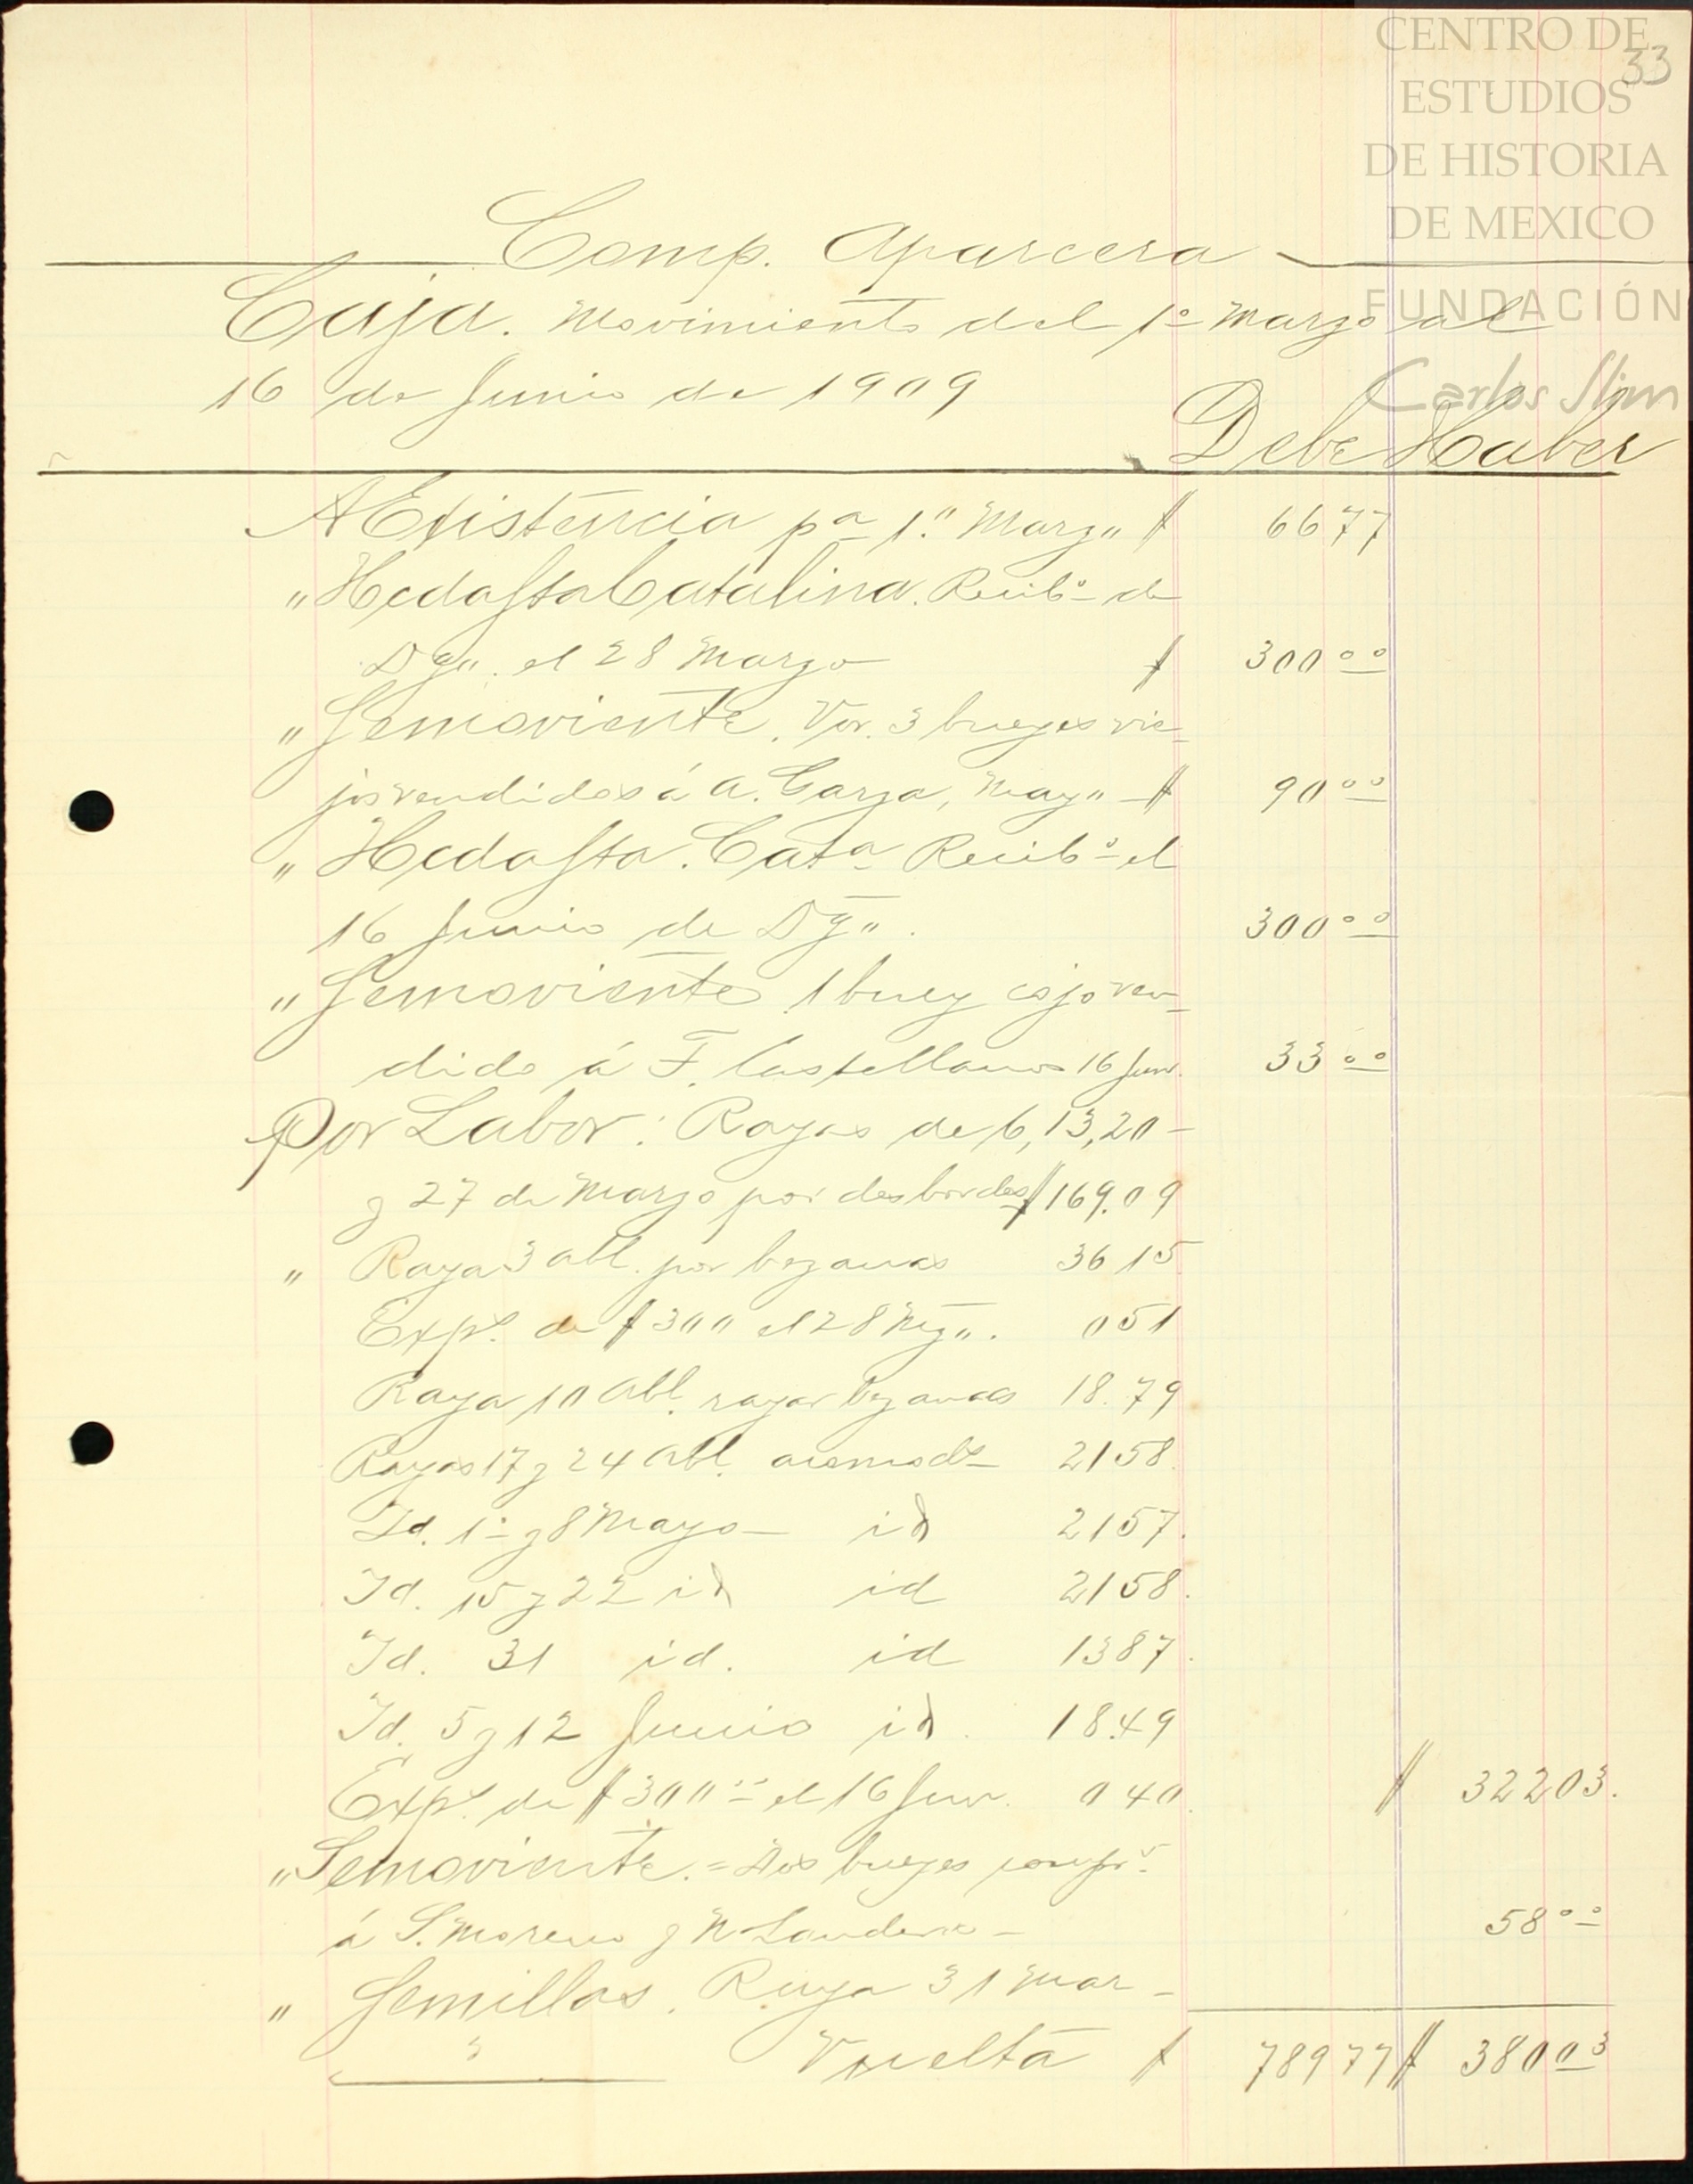 CENTRO DE
ESTUDIOS
DE HISTORIA
DE MEXICO
FUNDACIÓN
Carlos Slim
33
Comp. Aparcera
Caja. Movimiento del 1º Marzo al
16 de Junio de 1909
Debe Haber
A Existencia pª 1º Marz" $ 6677
" Hcda Sta Catalina. Recibº de
Dg". el 28 Marzo $ 300 00
" Semoviente. Vor. 3 bueyes vie-
jos vendidos á A. Garza, May" $ 90 00
" Hcda Sta. Catª Recibº el
16 Junio de Dg". 300 00
" Semoviente 1 buey cojo ven-
dido á F. Castellanos 16 Jun. 33 00
Por Labor: Rayas de 6, 13, 20
y 27 de Marzo por desbordes $ 169.09
" Raya 3 Abl. por bezanas 36 15
Exps. de $ 300 el 28 Mzo". 0 51
Raya 10 Abl. rayar bezanas 18.79
Rayas 17 y 24 Abl. acomods 21 58
Id. 1º y 8 Mayo id 21 57.
Id. 15 y 22 id id 21 58.
Id. 31 id. id 13 87.
Id. 5 y 12 Junio id. 18.49
Exps. de $ 300 00 el 16 Jun. 0 40. $ 322 03.
" Semoviente. = Dos bueyes comprs.
á S. Moreno y N Landeros 58 00
" Semillas. Raya 31 Mar-
Vuelta $ 789 77 $ 380 03